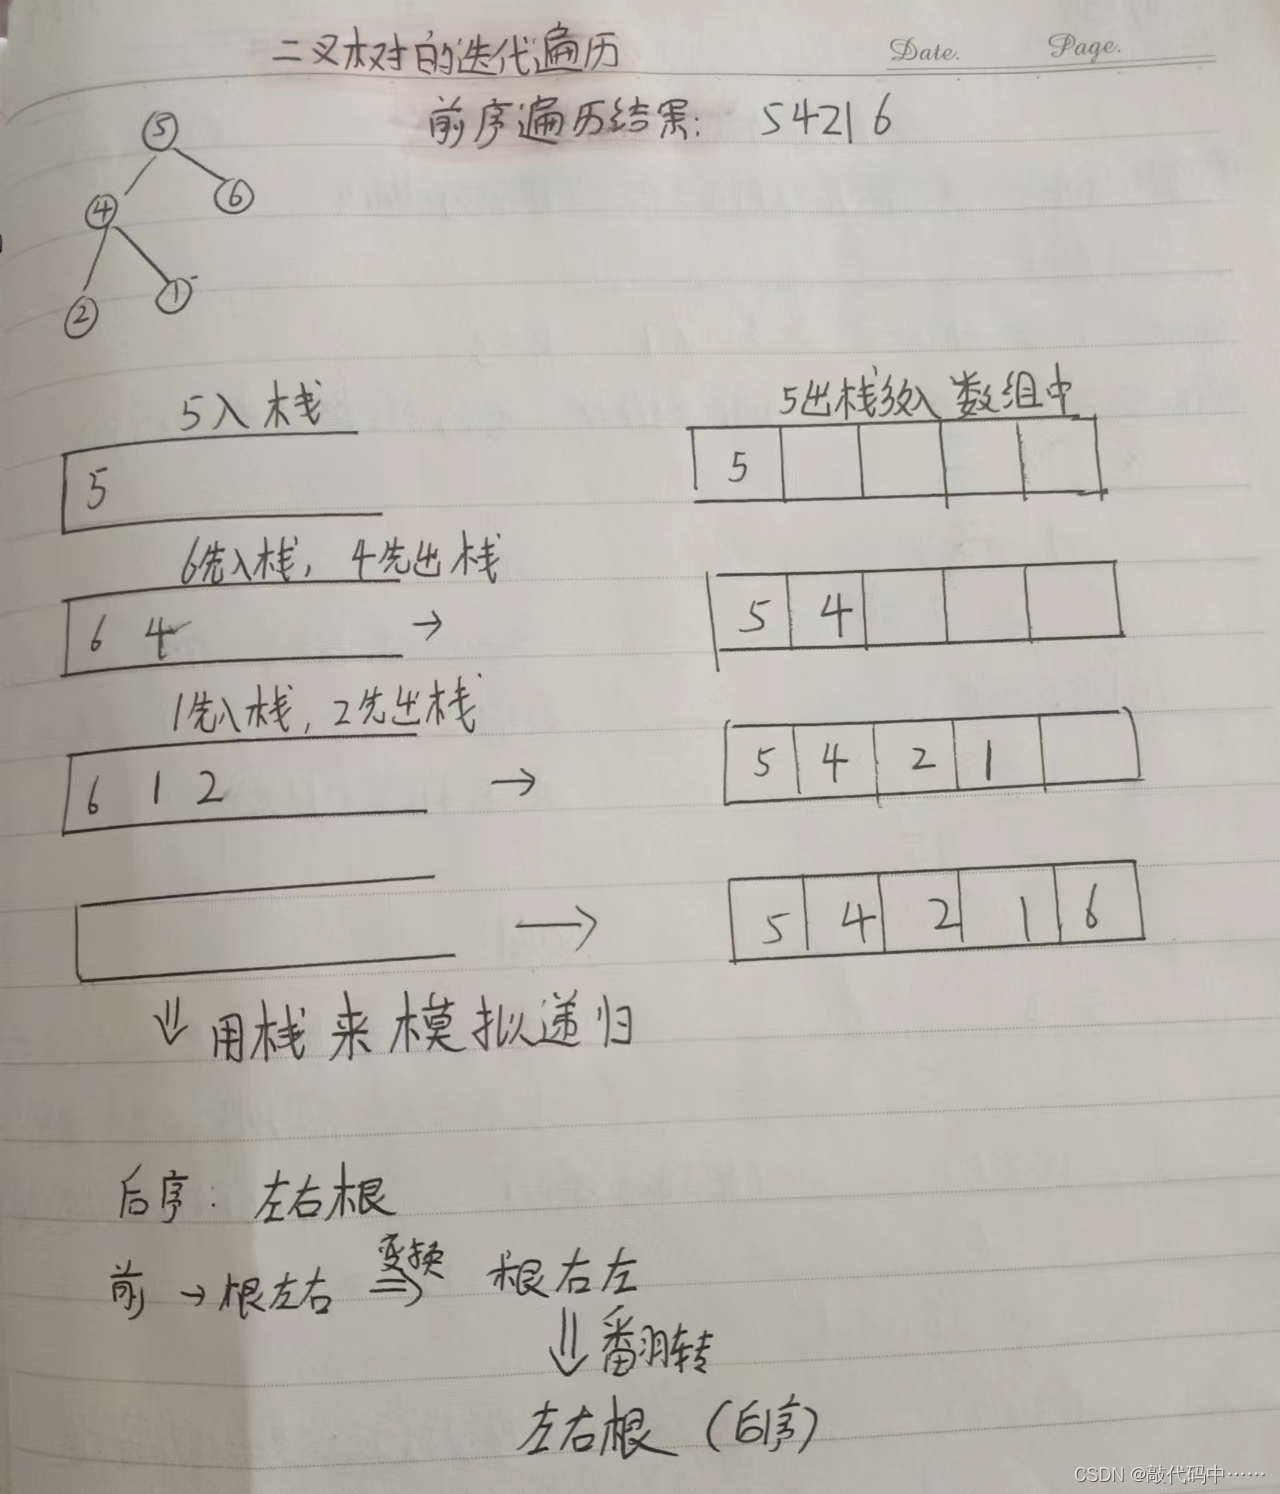 二叉树的迭代遍历
Date. Page.
前序遍历结果： 54216
5
4 6
2 1
5入栈 5出栈放入数组中
5 5
6先入栈，4先出栈
6 4 → 5 4
1先入栈，2先出栈
6 1 2 → 5 4 2 1
→ 5 4 2 1 6
⇓ 用栈来模拟递归
后序：左右根
前 → 根左右 ⇒ 变换 根右左
⇓ 翻转
左右根（后序）
CSDN @敲代码中……